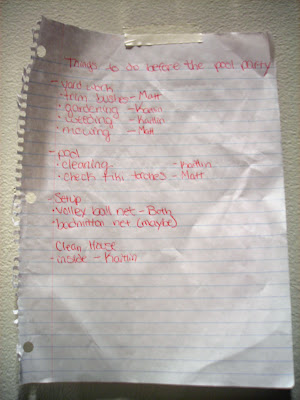 Things to do before the pool party
- yard work
• trim bushes - Matt
• gardening - Kaitlin
• weeding - Kaitlin
• mowing - Matt
- pool
• cleaning - Kaitlin
• check tiki torches - Matt
- Setup
• volley ball net - Both
• badmitton net (maybe)
Clean House
• inside - Kaitlin